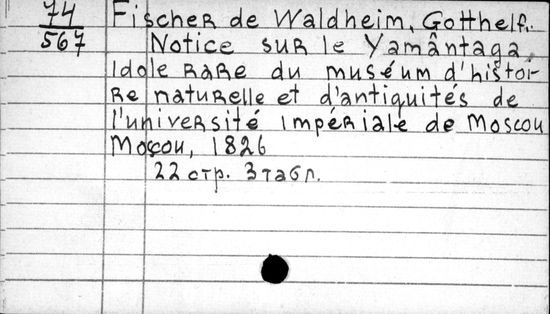 74
567
Fischer de Waldheim, Gotthelf.
Notice sur le Yamântaga,
Idole rare du muséum d'histoi-
re naturelle et d'antiquités de
l'université Impériale de Moscou
Moscou, 1826
22 стр. 3 табл.